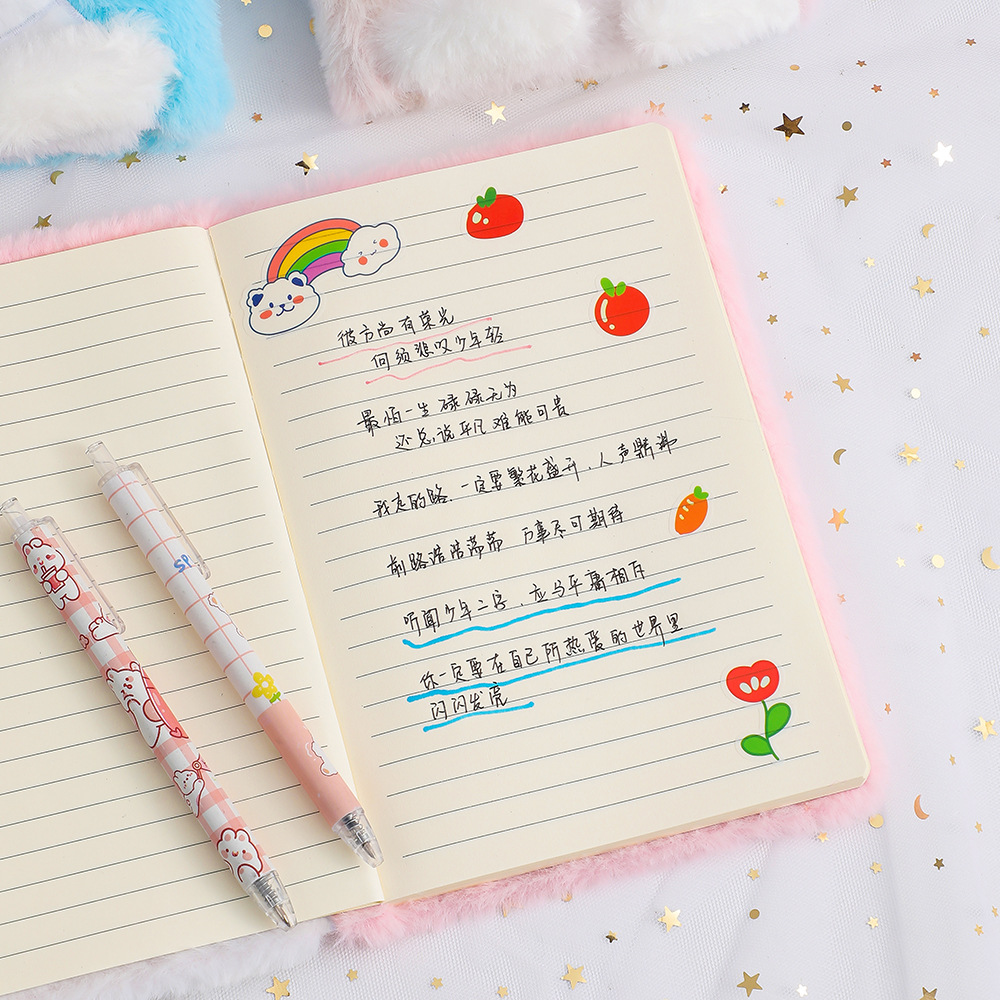 彼方尚有荣光
何须悲叹少年轻
最怕一生碌碌无为
还总说平凡难能可贵
我走的路,一定要繁花盛开,人声鼎沸
前路浩浩荡荡 万事尽可期待
听闻少年二字,应与平庸相斥
你一定要在自己所热爱的世界里
闪闪发亮
SP